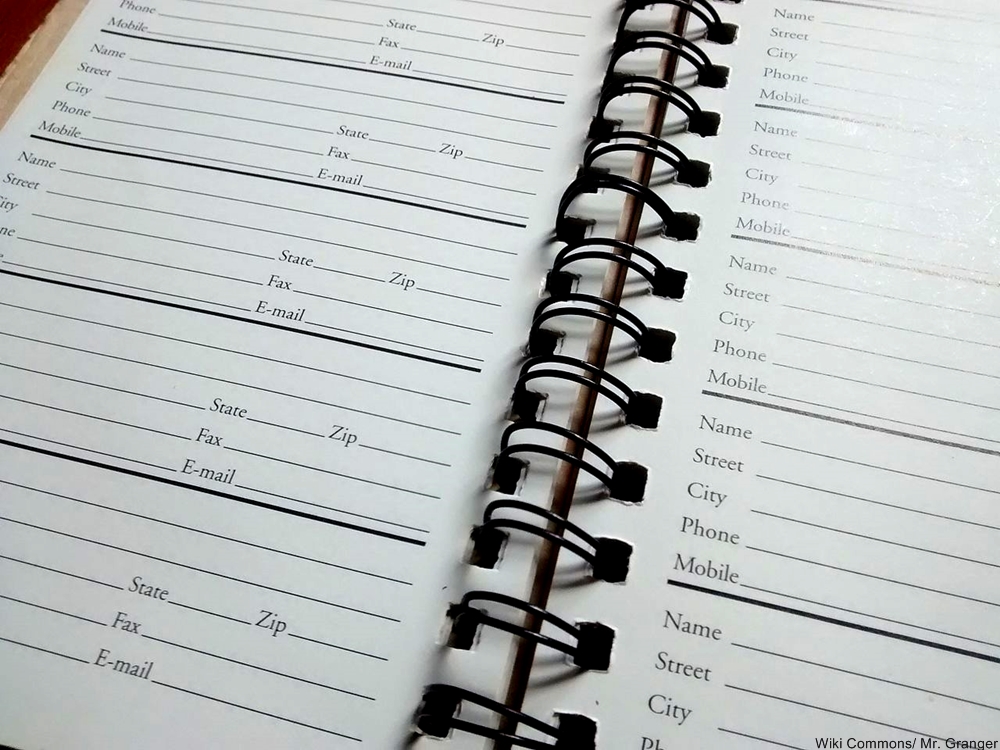 State Zip
Phone Fax
Mobile E-mail
Name
Street
City State Zip
Phone Fax
Mobile E-mail
Name
Street
ity State Zip
ne Fax
E-mail
State Zip
Fax
E-mail
State Zip
Fax
E-mail
Name
Street
City
Phone
Mobile
Name
Street
City
Phone
Mobile
Name
Street
City
Phone
Mobile
Name
Street
City
Phone
Mobile
Name
Street
City
Ph
Wiki Commons/ Mr. Granger